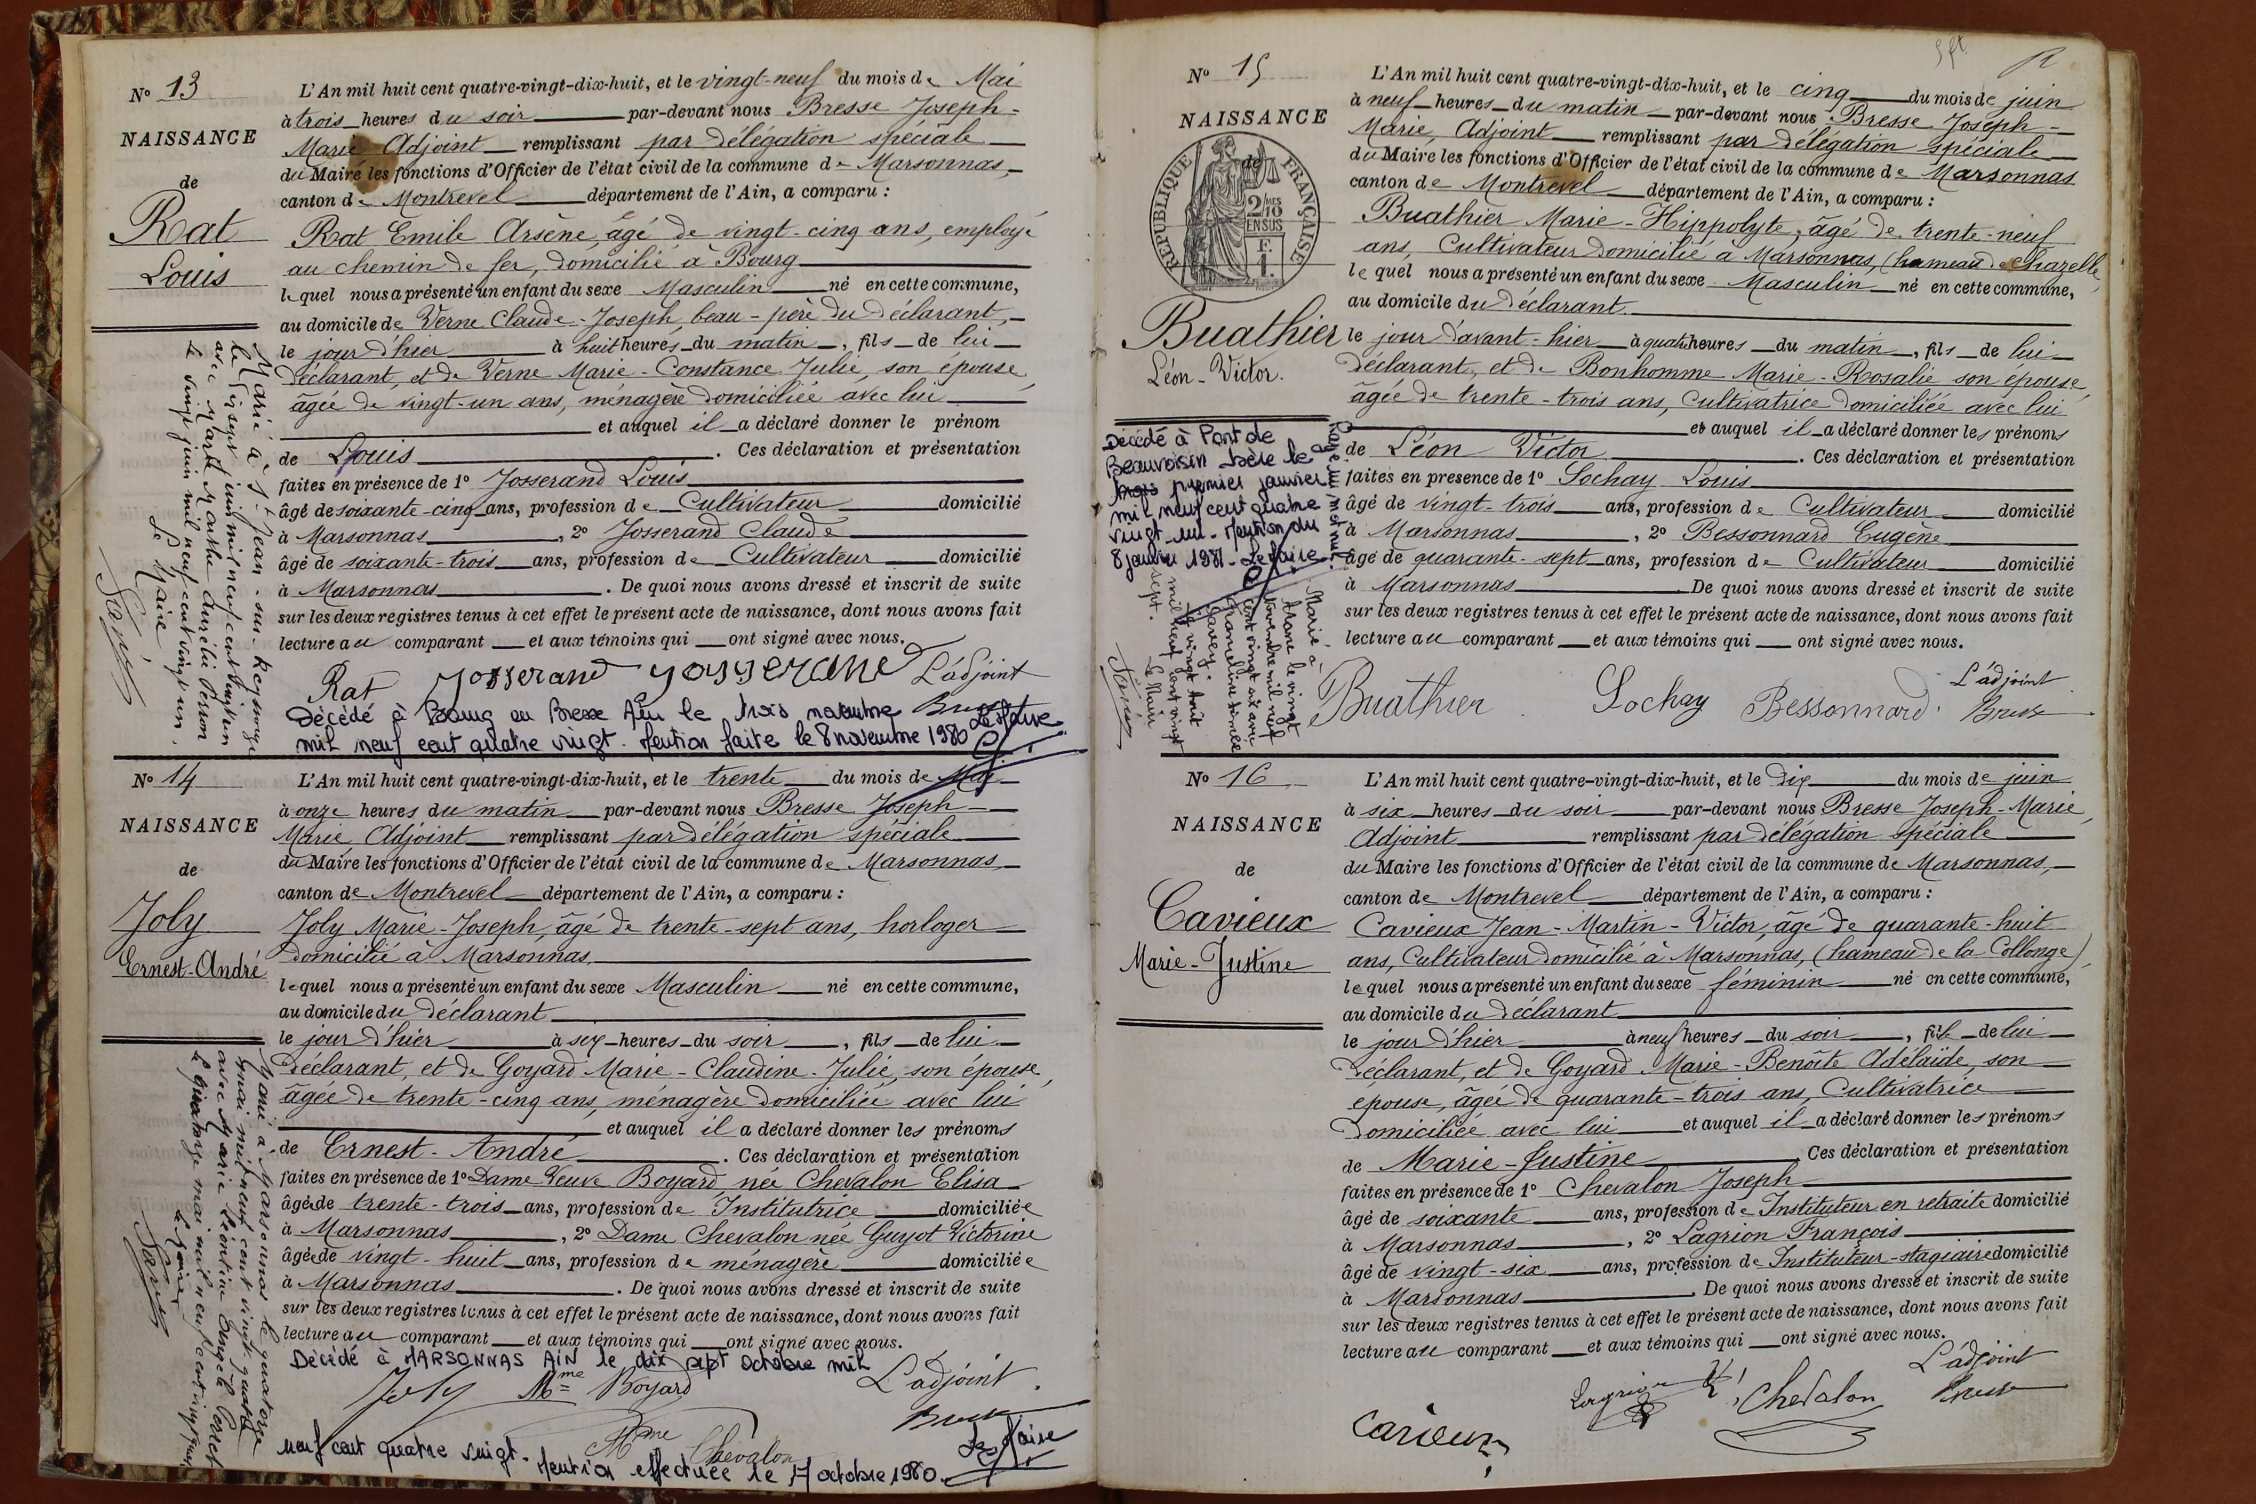 N° 13
NAISSANCE
de
Rat
Louis
L'An mil huit cent quatre-vingt-dix-huit, et le vingt-neuf du mois de Mai
à trois heures du soir par-devant nous Bresse Joseph-
Marie Adjoint remplissant par délégation spéciale
du Maire les fonctions d'Officier de l'état civil de la commune de Marsonnas,
canton de Montrevel département de l'Ain, a comparu :
Rat Emile Arsène, âgé de vingt-cinq ans, employé
au chemin de fer, domicilié à Bourg
lequel nous a présenté un enfant du sexe Masculin né en cette commune,
au domicile de Verne Claude-Joseph, beau-père du déclarant,
le jour d'hier à huit heures du matin, fils de lui
déclarant, et de Verne Marie-Constance Julie, son épouse,
âgée de vingt-un ans, ménagère domiciliée avec lui
et auquel il a déclaré donner le prénom
de Louis. Ces déclaration et présentation
faites en présence de 1° Josserand Louis
âgé de soixante-cinq ans, profession de Cultivateur domicilié
à Marsonnas, 2° Josserand Claude
âgé de soixante-trois ans, profession de Cultivateur domicilié
à Marsonnas. De quoi nous avons dressé et inscrit de suite
sur les deux registres tenus à cet effet le présent acte de naissance, dont nous avons fait
lecture au comparant et aux témoins qui ont signé avec nous.
Rat Josserand Josserand L'adjoint
Bresse
Décédé à Bourg en Bresse Ain le trois novembre
mil neuf cent quatre vingt. Mention faite le 8 novembre 1980 Le Maire
Marié à St Jean-sur-Reyssouze
le dix sept juin mil neuf cent vingt un
avec Marie Marthe Aurélie
le vingt juin mil neuf cent vingt un.
Le Maire
N° 14
NAISSANCE
de
Joly
Ernest-André
L'An mil huit cent quatre-vingt-dix-huit, et le trente du mois de Mai
à onze heures du matin par-devant nous Bresse Joseph-
Marie, Adjoint remplissant par délégation spéciale
du Maire les fonctions d'Officier de l'état civil de la commune de Marsonnas,
canton de Montrevel département de l'Ain, a comparu :
Joly Marie-Joseph, âgé de trente-sept ans, horloger
domicilié à Marsonnas
lequel nous a présenté un enfant du sexe Masculin né en cette commune,
au domicile du déclarant
le jour d'hier à six heures du soir, fils de lui
déclarant, et de Goyard Marie-Claudine-Julie, son épouse,
âgée de trente-cinq ans, ménagère domiciliée avec lui
et auquel il a déclaré donner les prénoms
de Ernest-André. Ces déclaration et présentation
faites en présence de 1° Dame Veuve Boyard née Chevalon Elisa
âgée de trente-trois ans, profession de Institutrice domiciliée
à Marsonnas, 2° Dame Chevalon née Guyot Victorine
âgée de vingt-huit ans, profession de ménagère domiciliée
à Marsonnas. De quoi nous avons dressé et inscrit de suite
sur les deux registres tenus à cet effet le présent acte de naissance, dont nous avons fait
lecture au comparant et aux témoins qui ont signé avec nous.
Décédé à MARSONNAS AIN le dix sept octobre mil
Joly Mme Boyard L'adjoint
Mme Chevalon Bresse
neuf cent quatre vingt. Mention effectuée le 17 octobre 1980. Le Maire
Marié à Marsonnas le quatorze
mai mil neuf cent vingt quatre
avec Marie Léontine Angèle
le quatorze mai mil neuf cent vingt quatre
Le Maire
N° 15
NAISSANCE
de
REPUBLIQUE FRANÇAISE
2/10 EN SUS
Buathier
Léon-Victor.
L'An mil huit cent quatre-vingt-dix-huit, et le cinq du mois de juin
à neuf heures du matin par-devant nous Bresse Joseph-
Marie, Adjoint remplissant par délégation spéciale
du Maire les fonctions d'Officier de l'état civil de la commune de Marsonnas
canton de Montrevel département de l'Ain, a comparu :
Buathier Marie-Hippolyte, âgé de trente-neuf
ans, Cultivateur domicilié à Marsonnas, (hameau de Chazelle,
lequel nous a présenté un enfant du sexe Masculin né en cette commune,
au domicile du déclarant.
le jour d'avant-hier à quatre heures du matin, fils de lui
déclarant, et de Bonhomme Marie-Rosalie son épouse,
âgée de trente-trois ans, Cultivatrice domiciliée avec lui
et auquel il a déclaré donner les prénoms
de Léon Victor. Ces déclaration et présentation
faites en présence de 1° Sochay Louis
âgé de vingt-trois ans, profession de Cultivateur domicilié
à Marsonnas, 2° Bessonnard Eugène
âgé de quarante-sept ans, profession de Cultivateur domicilié
à Marsonnas De quoi nous avons dressé et inscrit de suite
sur les deux registres tenus à cet effet le présent acte de naissance, dont nous avons fait
lecture au comparant et aux témoins qui ont signé avec nous.
Buathier Sochay Bessonnard. L'adjoint
Bresse
Décédé à Pont de
Beauvoisin Isère le
trois premier janvier
mil neuf cent quatre
vingt un. Mention du
8 janvier 1981. Le Maire
Marié à
le vingt
novembre mil neuf
cent vingt six avec
vingt huit
mil neuf cent vingt
sept. Le Maire
N° 16
NAISSANCE
de
Cavieux
Marie-Justine
L'An mil huit cent quatre-vingt-dix-huit, et le dix du mois de juin
à six heures du soir par-devant nous Bresse Joseph-Marie,
Adjoint remplissant par délégation spéciale
du Maire les fonctions d'Officier de l'état civil de la commune de Marsonnas,
canton de Montrevel département de l'Ain, a comparu :
Cavieux Jean-Martin-Victor, âgé de quarante-huit
ans, Cultivateur domicilié à Marsonnas, (hameau de la Collonge),
lequel nous a présenté un enfant du sexe féminin né en cette commune,
au domicile du déclarant
le jour d'hier à neuf heures du soir, fille de lui
déclarant, et de Goyard Marie-Benoîte Adélaïde, son
épouse, âgée de quarante-trois ans, Cultivatrice
domiciliée avec lui et auquel il a déclaré donner les prénoms
de Marie-Justine Ces déclaration et présentation
faites en présence de 1° Chevalon Joseph
âgé de soixante ans, profession de Instituteur en retraite domicilié
à Marsonnas, 2° Lagrion François
âgé de vingt-six ans, profession de Instituteur-stagiaire domicilié
à Marsonnas. De quoi nous avons dressé et inscrit de suite
sur les deux registres tenus à cet effet le présent acte de naissance, dont nous avons fait
lecture au comparant et aux témoins qui ont signé avec nous.
Cavieux Lagrion Chevalon L'adjoint
Bresse